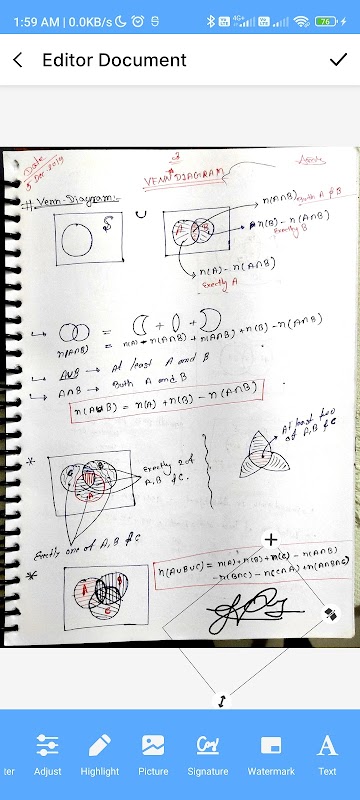 1:59 AM | 0.0KB/s
4G+
76
Editor Document
Date
5 Dec 2019
3
VENN DIAGRAM
# Venn-Diagram:-
S
U
n(A∩B)
Both A & B
A
B
n(B) - n(A∩B)
Exactly B
n(A) - n(A∩B)
Exactly A
= ( + () + )
n(A∩B) = n(A) - n(A∩B) + n(A∩B) + n(B) - n(A∩B)
↳ A∪B → At least A and B
↳ A∩B → Both A and B
n(A∪B) = n(A) + n(B) - n(A∩B)
At least two
of A, B & C
*
Exactly 2 of
A, B & C.
Exactly one of A, B & C
*
A
B
C
n(A∪B∪C) = n(A) + n(B) + n(C) - n(A∩B)
- n(B∩C) - n(C∩A) + n(A∩B∩C)
Adjust
Highlight
Picture
Signature
Watermark
Text